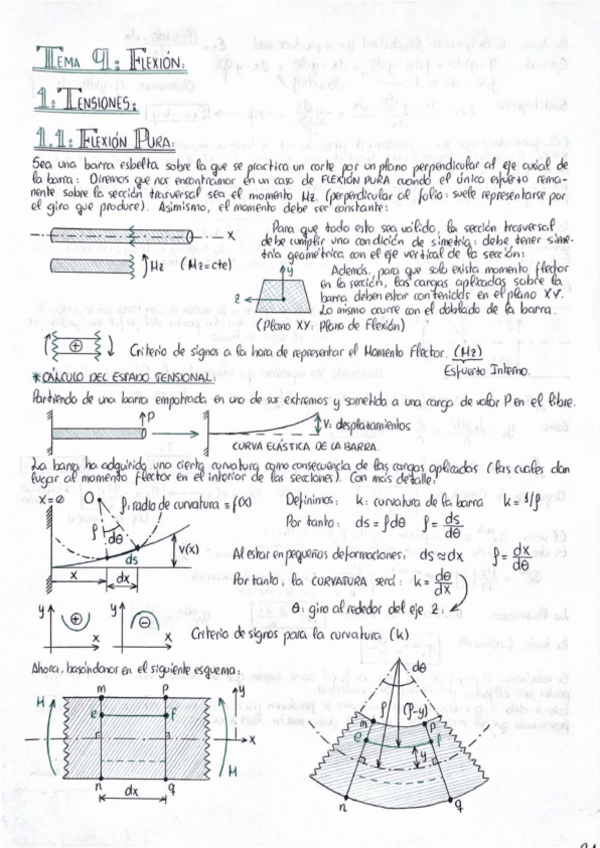 TEMA 9: FLEXIÓN:
1: TENSIONES:
1.1: FLEXIÓN PURA:
Sea una barra esbelta sobre la que se practica un corte por un plano perpendicular al eje axial de
la barra: Diremos que nos encontramos en un caso de FLEXIÓN PURA cuando el único esfuerzo rema-
nente sobre la sección trasversal sea el momento Mz. (perpendicular al folio: suele representarse por
el giro que produce). Asimismo, el momento debe ser constante:
Para que todo esto sea válido, la sección trasversal
x
debe cumplir una condición de simetría: debe tener sime-
tría geométrica con el eje vertical de la sección:
Mz (Mz=cte)
y
z
Además, para que solo exista momento flector
en la sección, las cargas aplicadas sobre la
barra deben estar contenidas en el plano XY.
Lo mismo ocurre con el doblado de la barra.
(Plano XY: Plano de Flexión)
+
Criterio de signos a la hora de representar el Momento Flector. (Mz)
Esfuerzo Interno.
*CÁLCULO DEL ESTADO TENSIONAL:
Partiendo de una barra empotrada en uno de sus extremos y sometida a una carga de valor P en el libre.
P
V: desplazamientos
CURVA ELÁSTICA DE LA BARRA.
La barra ha adquirido una cierta curvatura como consecuencia de las cargas aplicadas (las cuales dan
lugar al momento flector en el interior de las secciones). Con más detalle:
x=0
O
ρ: radio de curvatura = f(x)
Definimos: k: curvatura de la barra k=1/ρ
ρ
dθ
Por tanto: ds=ρdθ ρ=ds/dθ
ds
V(x)
Al estar en pequeñas deformaciones: ds≈dx ρ=dx/dθ
x
dx
Por tanto, la CURVATURA será: k=dθ/dx
θ: giro alrededor del eje z:
y + x
y - x
Criterio de signos para la curvatura (k)
Ahora, basándonos en el siguiente esquema:
dθ
m p y
M
e f
x
M
n q
dx
ρ (ρ-y)
m p
e f
y
n q